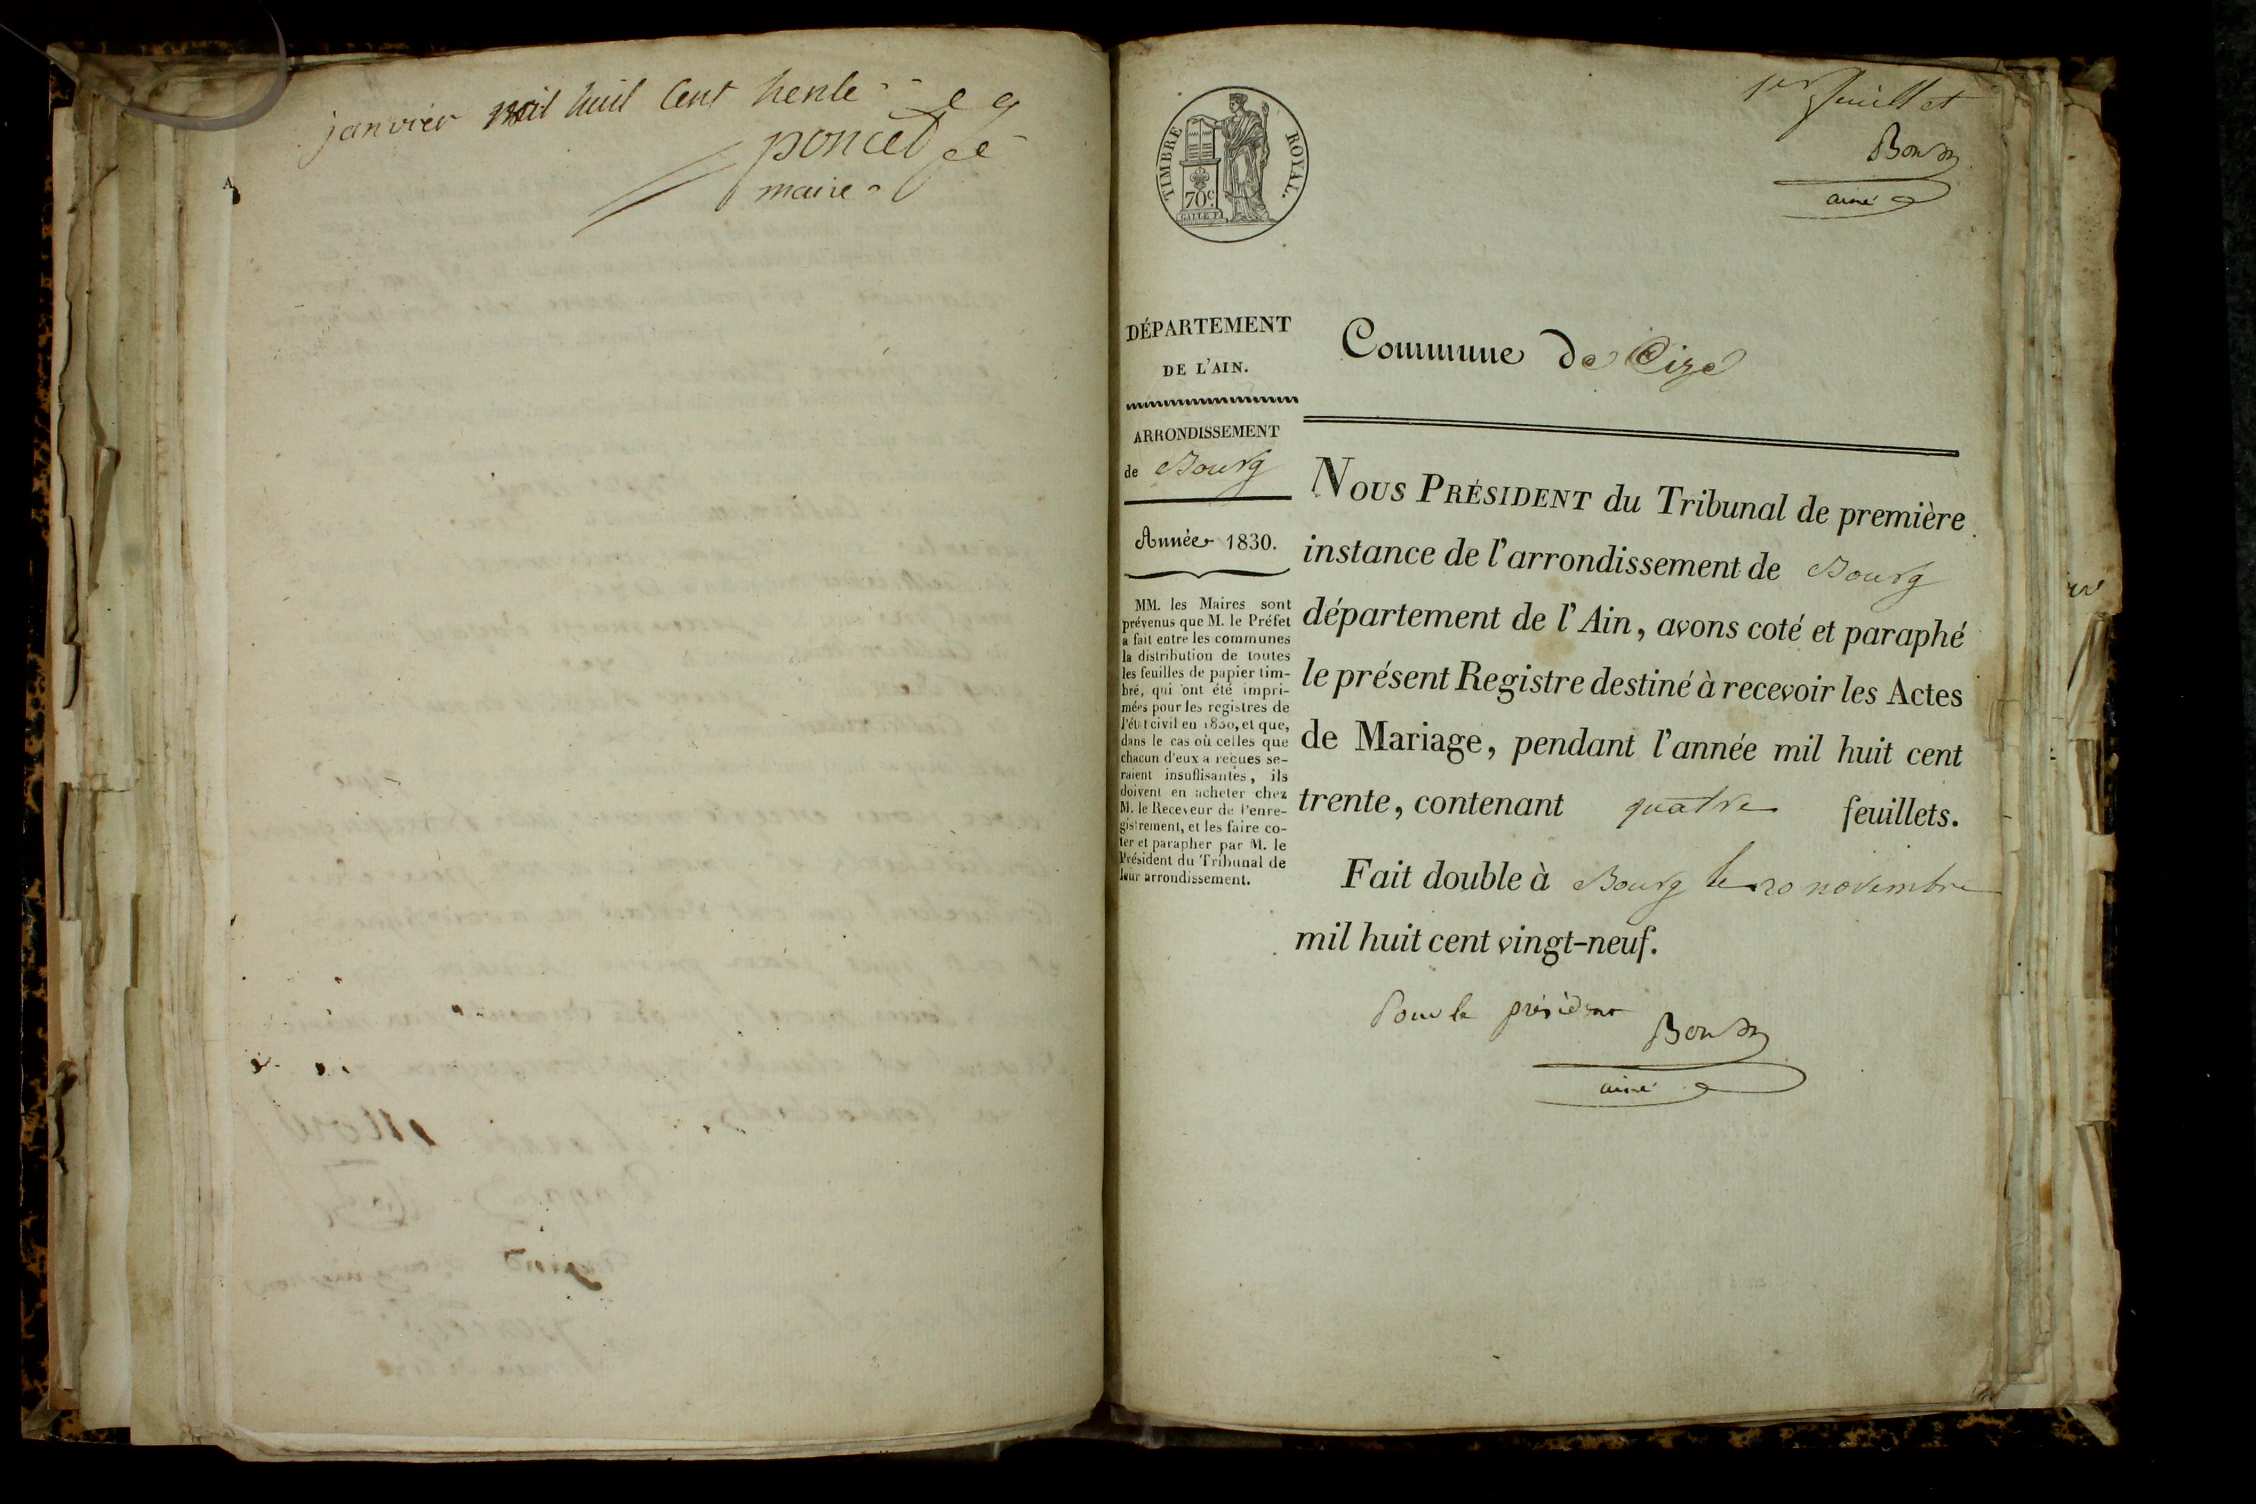 janvier mil huit Cent trente
poncet
maire
1er feuillet
aine
TIMBRE ROYAL.
70c.
DÉPARTEMENT
DE L'AIN.
ARRONDISSEMENT
de Bourg
Année 1830.
MM. les Maires sont
prévenus que M. le Préfet
a fait entre les communes
la distribution de toutes
les feuilles de papier tim-
bré, qui ont été impri-
mées pour les registres de
l'état civil en 1830, et que,
dans le cas où celles que
chacun d'eux a reçues se-
raient insuffisantes, ils
doivent en acheter chez
M. le Receveur de l'enre-
gistrement, et les faire co-
ter et parapher par M. le
Président du Tribunal de
leur arrondissement.
Commune de Cize
NOUS PRÉSIDENT du Tribunal de première
instance de l'arrondissement de Bourg
département de l'Ain, avons coté et paraphé
le présent Registre destiné à recevoir les Actes
de Mariage, pendant l'année mil huit cent
trente, contenant quatre feuillets.
Fait double à Bourg le 20 novembre
mil huit cent vingt-neuf.
Pour le président
aine